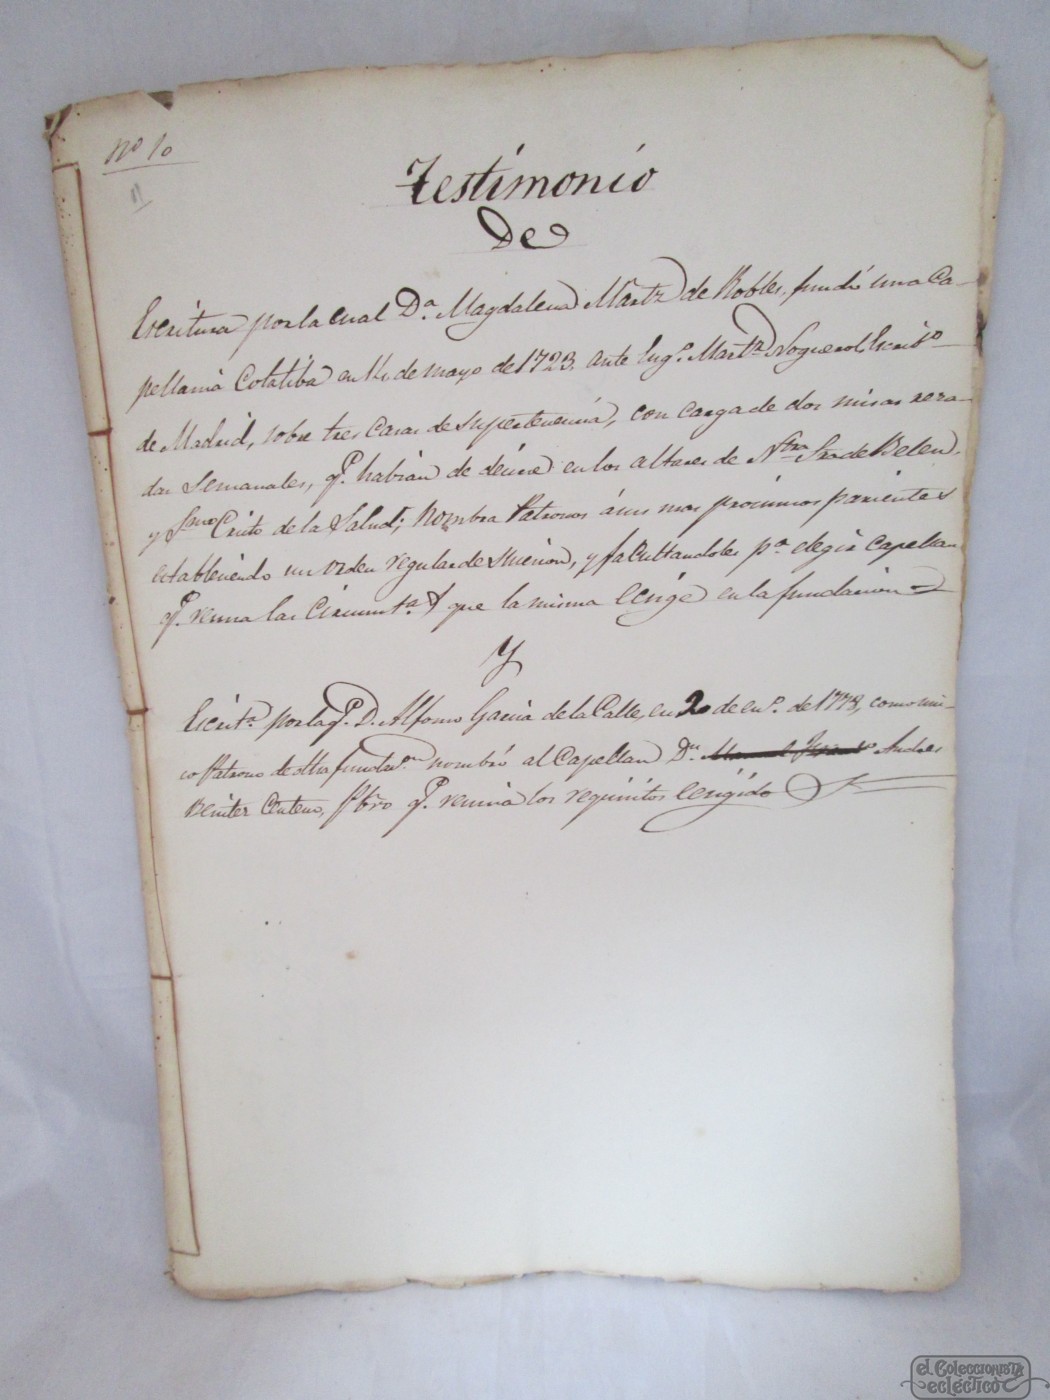 Nº 10
11
Testimonio
De
Escritura por la cual D.ª Magdalena Mârtz de Robles, fundó una Ca-
pellania Colatiba en 11 de mayo de 1723. ante Eug.º Mart.z Noguerol, Escrib.º
de Madrid, sobre tres Casas de su pertenencia, con carga de dos misas reza-
das semanales, q.e habian de decirse en los altares de N.tra Sra de Belen.
y S.mo Cristo de la Salud; nombra Patronos á sus mas procsimos parientes
estableciendo un orden regular de sucesion, y facultandoles p.a elegir Capellan
q.e reuna las circunst.as que la misma ecsige en la fundacion
Y
Escrit.ª por la q.e D. Alfonso Garcia de la Calle, en 20 de en.º de 1778, como uni-
co Patrono de dha fundac.on nombró al Capellan D.n Andres
Benitez Centeno, Pbro q.e reunia los requisitos ecsigidos
el Coleccionista
ecléctico